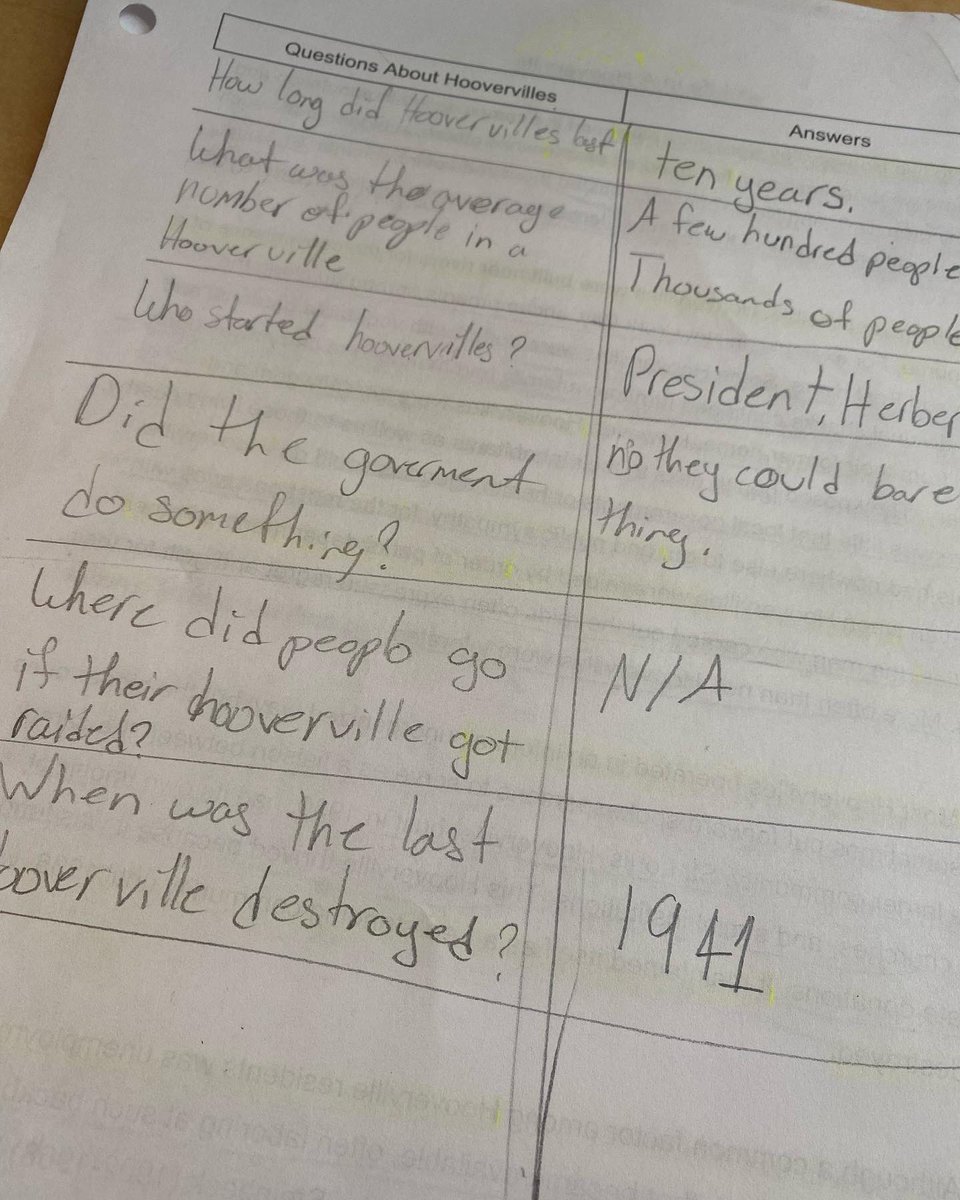 Questions About Hoovervilles
Answers
How long did Hoovervilles last
ten years.
What was the average
number of people in a
Hooverville
A few hundred people
Thousands of people
Who started hoovervilles?
President, Herber
Did the goverment
do something?
no they could bare
thing.
Where did people go
if their hooverville got
raided?
N/A
When was the last
hooverville destroyed?
1941